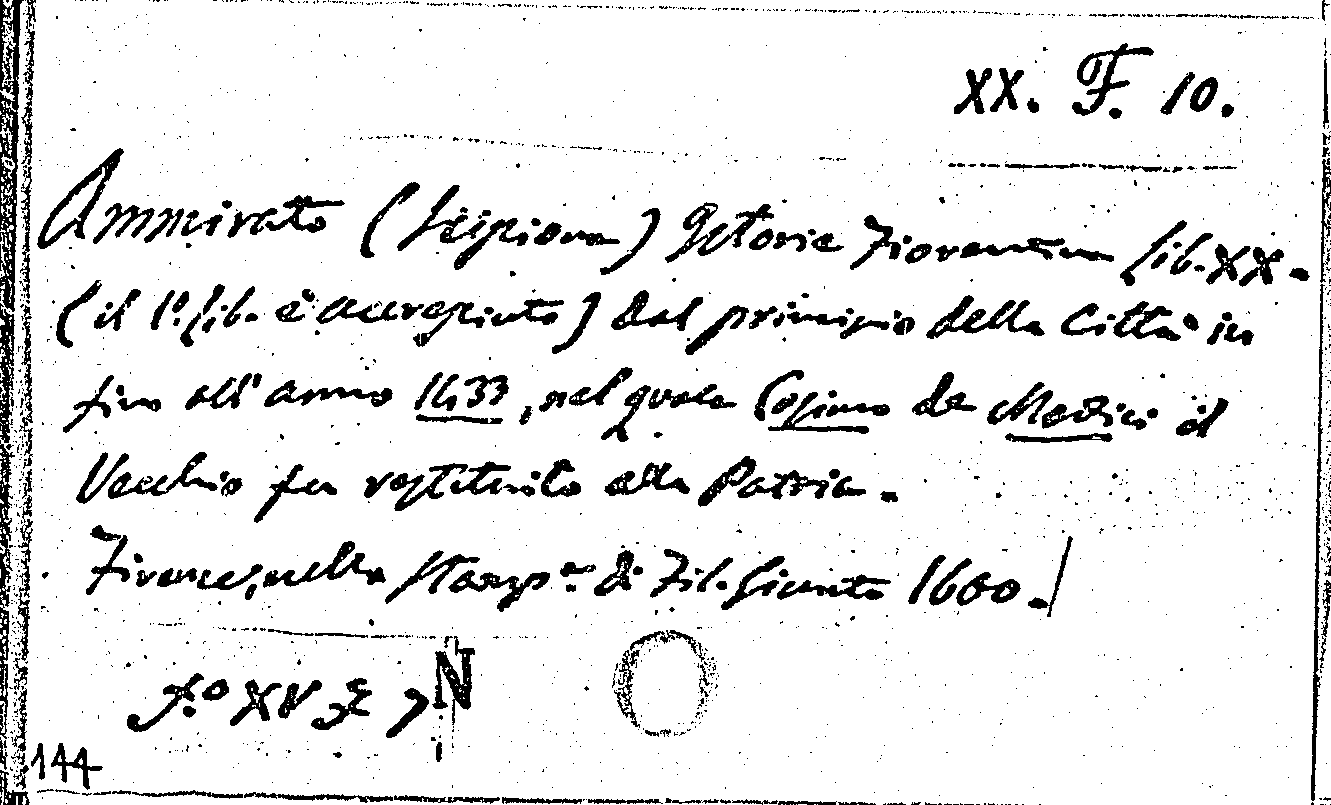 XX. F. 10.
Ammirato (Scipione) Istorie Fiorentine Lib. XX.
(il 1º. Lib. è accresciuto) dal principio della Città in
fino all'anno 1433, nel quale Cosimo de Medici il
Vecchio fu restituito alla Patria.
Firenze, nella Stamp.ª di Fil. Giunta 1600.
F.º XV F 7 N
144